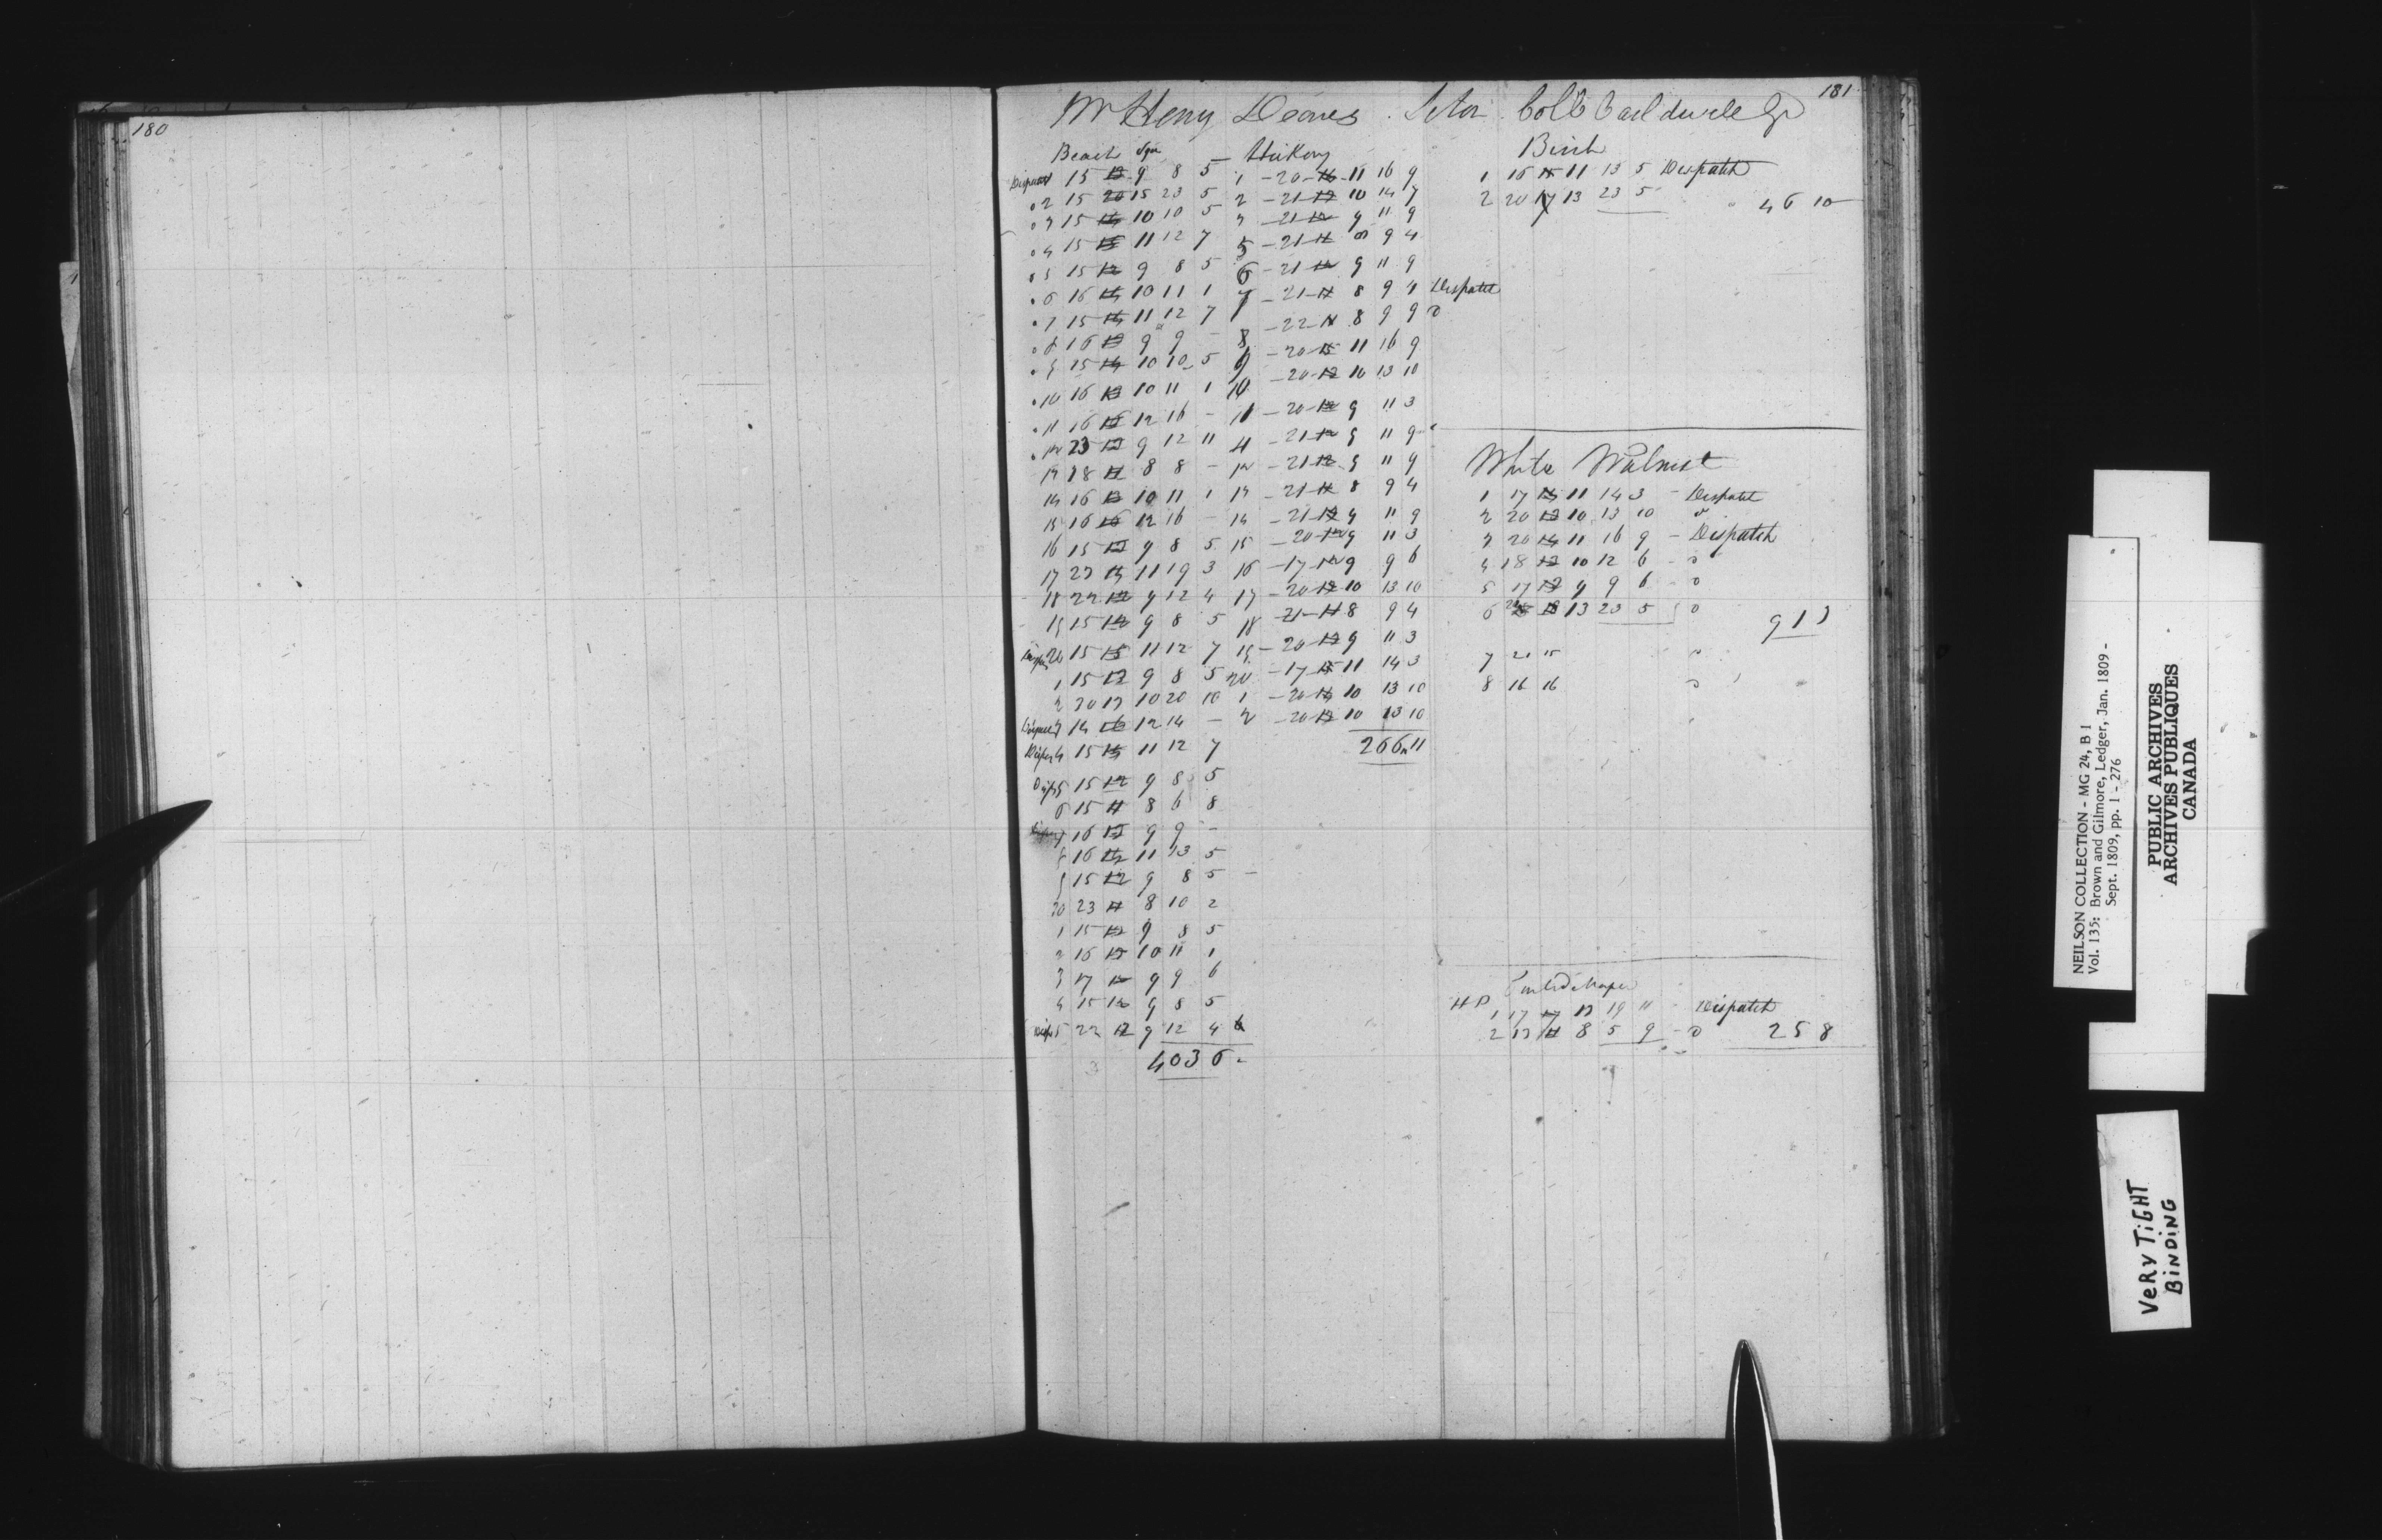 180
181
Mr Heny Deaves . Coll Caeldwele
Beach Sqr
Dispatch 15 12 9 8 5
2 15 20 15 23 5
3 15 14 10 10 5
4 15 15 11 12 7
5 15 12 9 8 5
6 16 14 10 11 1
7 15 15 11 12 7
8 16 13 9 9 -
9 15 14 10 10 5
10 16 13 10 11 1
11 16 16 12 16 -
12 23 12 9 12 11
13 18 11 8 8 -
14 16 13 10 11 1
15 16 16 12 16 -
16 15 12 9 8 5
17 23 15 11 19 3
18 22 12 9 12 4
19 15 12 9 8 5
20 15 15 11 12 7
1 15 12 9 8 5
2 30 13 10 20 10
3 14 16 12 14 -
4 15 15 11 12 7
5 15 12 9 8 5
6 15 11 8 6 8
7 16 12 9 9 -
8 16 15 11 13 5
9 15 12 9 8 5 -
30 23 11 8 10 2
1 15 12 9 8 5
2 16 13 10 11 1
3 17 12 9 9 6
4 15 12 9 8 5
5 22 12 9 12 4
403 6
Hickory
1 - 20 - 16 - 11 16 9
2 - 21 - 12 10 14 7
3 - 21 - 12 9 11 9
5 - 21 - 11 8 9 4
6 - 21 - 12 9 11 9
7 - 21 - 11 8 9 4 Dispatch
- 22 - 11 8 9 9 o
8 - 20 - 15 11 16 9
9 - 20 - 12 10 13 10
10 - 20 - 12 9 11 3
11 - 21 - 12 9 11 9
12 - 21 - 12 9 11 9
13 - 21 - 11 8 9 4
14 - 21 - 12 9 11 9
15 - 20 - 12 9 11 3
16 - 17 - 12 9 9 6
17 - 20 - 12 10 13 10
18 - 21 - 11 8 9 4
19 - 20 - 12 9 11 3
20 - 17 - 15 11 14 3
1 - 20 - 14 10 13 10
2 - 20 - 12 10 13 10
266 11
Birch
1 16 15 11 13 5 Despatch
2 20 17 13 23 5
46 10
White Walnut
1 17 15 11 14 3 - Dispatch
2 20 13 10 13 10 o
3 20 14 11 16 9 - Dispatch
4 18 13 10 12 6 - o
5 17 12 9 9 6 - o
6 18 13 23 5 o
91 3
7 21 15 o
8 16 16 o
HP
1 17 17 13 19 11 - Dispatch
2 13 11 8 5 9 - o 25 8
NEILSON COLLECTION - MG 24, B 1
Vol. 135: Brown and Gilmore, Ledger, Jan. 1809 -
Sept. 1809, pp. 1 - 276
PUBLIC ARCHIVES
ARCHIVES PUBLIQUES
CANADA
VERY TiGHT
BiNDiNG